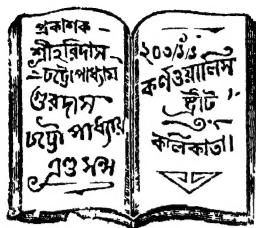 প্রকাশক–
শ্রীহরিদাস
–চট্টোপাধ্যায়
গুরদাস
চট্টোপাধ্যায়
এণ্ড সন্স
২০৩/১/১
কর্ণওয়ালিস
স্ট্রীট
কলিকাতা।